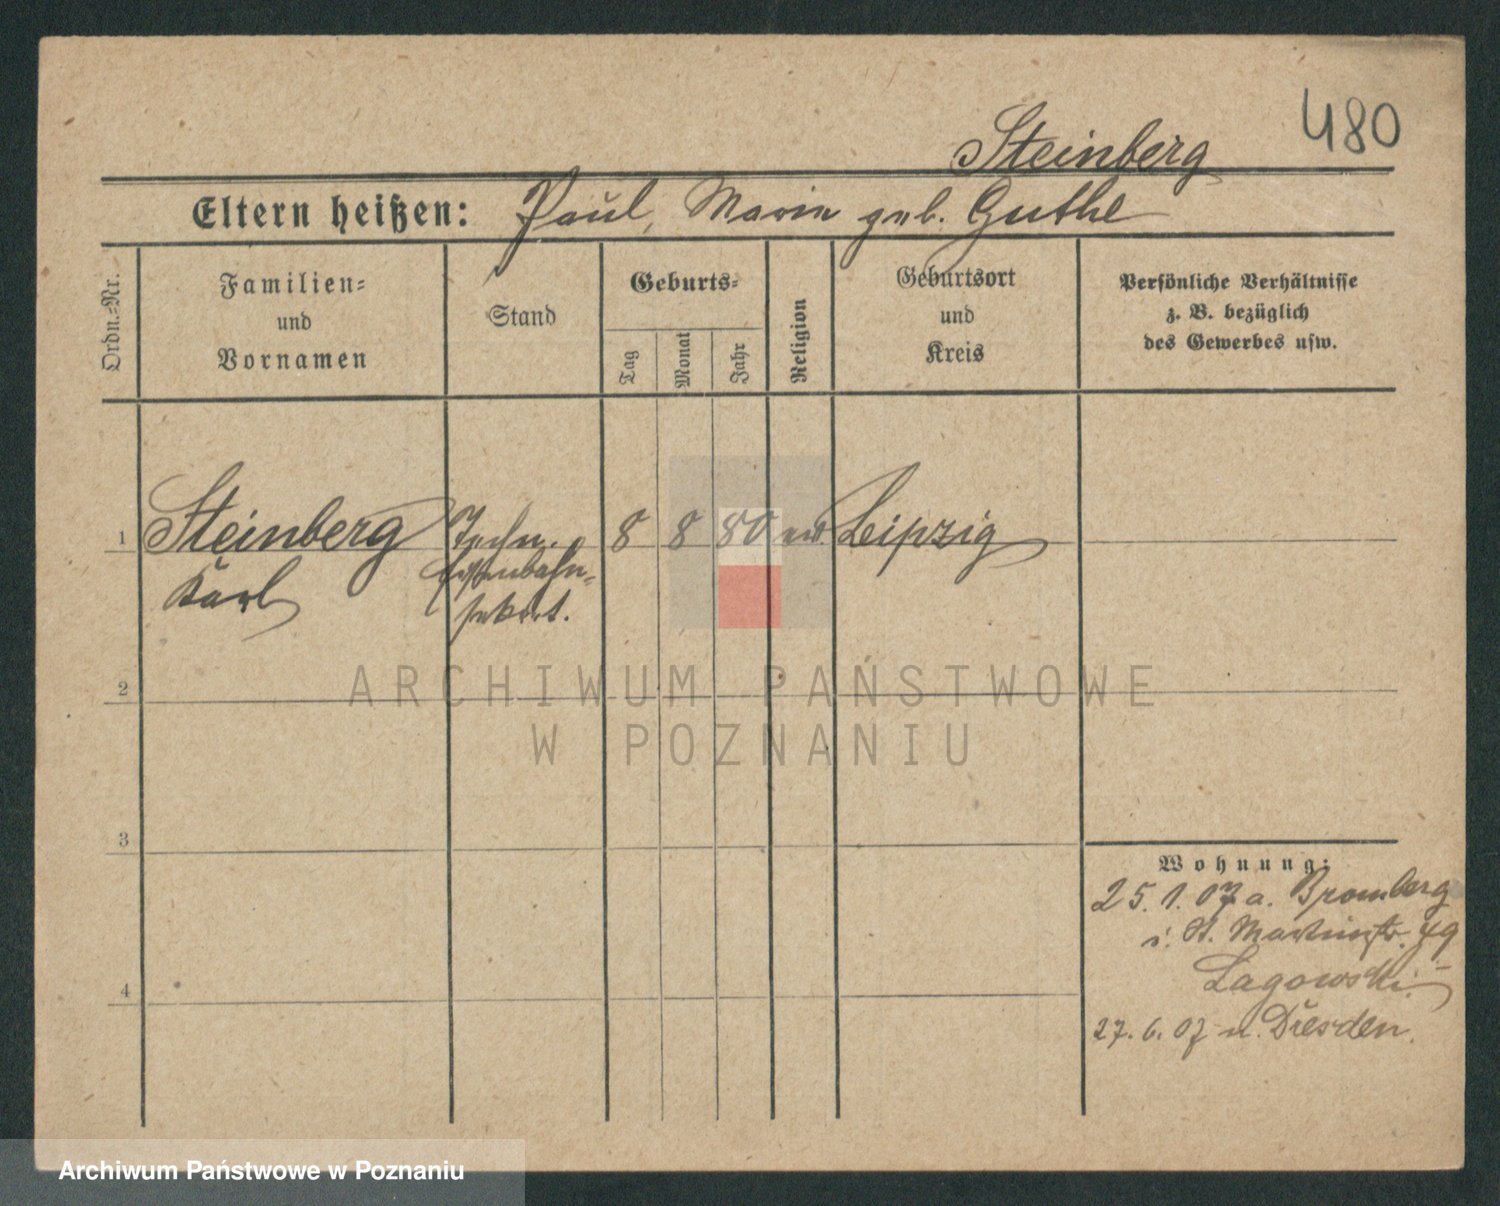 480
Steinberg
Eltern heißen: Paul, Marie geb. Guthe
Ordn.-Nr.
Familien-
und
Vornamen
Stand
Geburts-
Tag
Monat
Jahr
Religion
Geburtsort
und
Kreis
Persönliche Verhältnisse
z. B. bezüglich
des Gewerbes usw.
1 Steinberg Techn. 8 8 80 ev. Leipzig
Karl Eisenbahn-
sekret.
2
ARCHIWUM PAŃSTWOWE
W POZNANIU
3
Wohnung:
25.1.07 a. Bromberg
i. St. Martinstr. 49
Lagowski
4
27.6.07 n. Dresden.
Archiwum Państwowe w Poznaniu